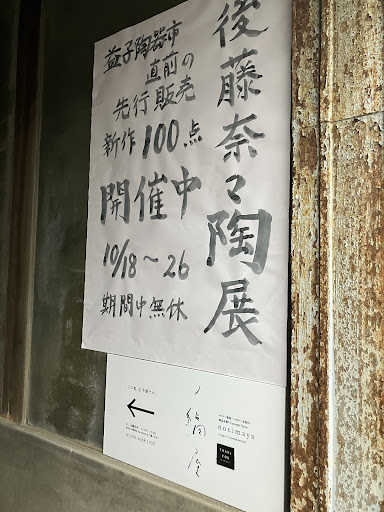 後藤奈々陶展
益子陶器市
直前の
先行販売
新作100点
開催中
10/18〜26
期間中無休
nocimaya